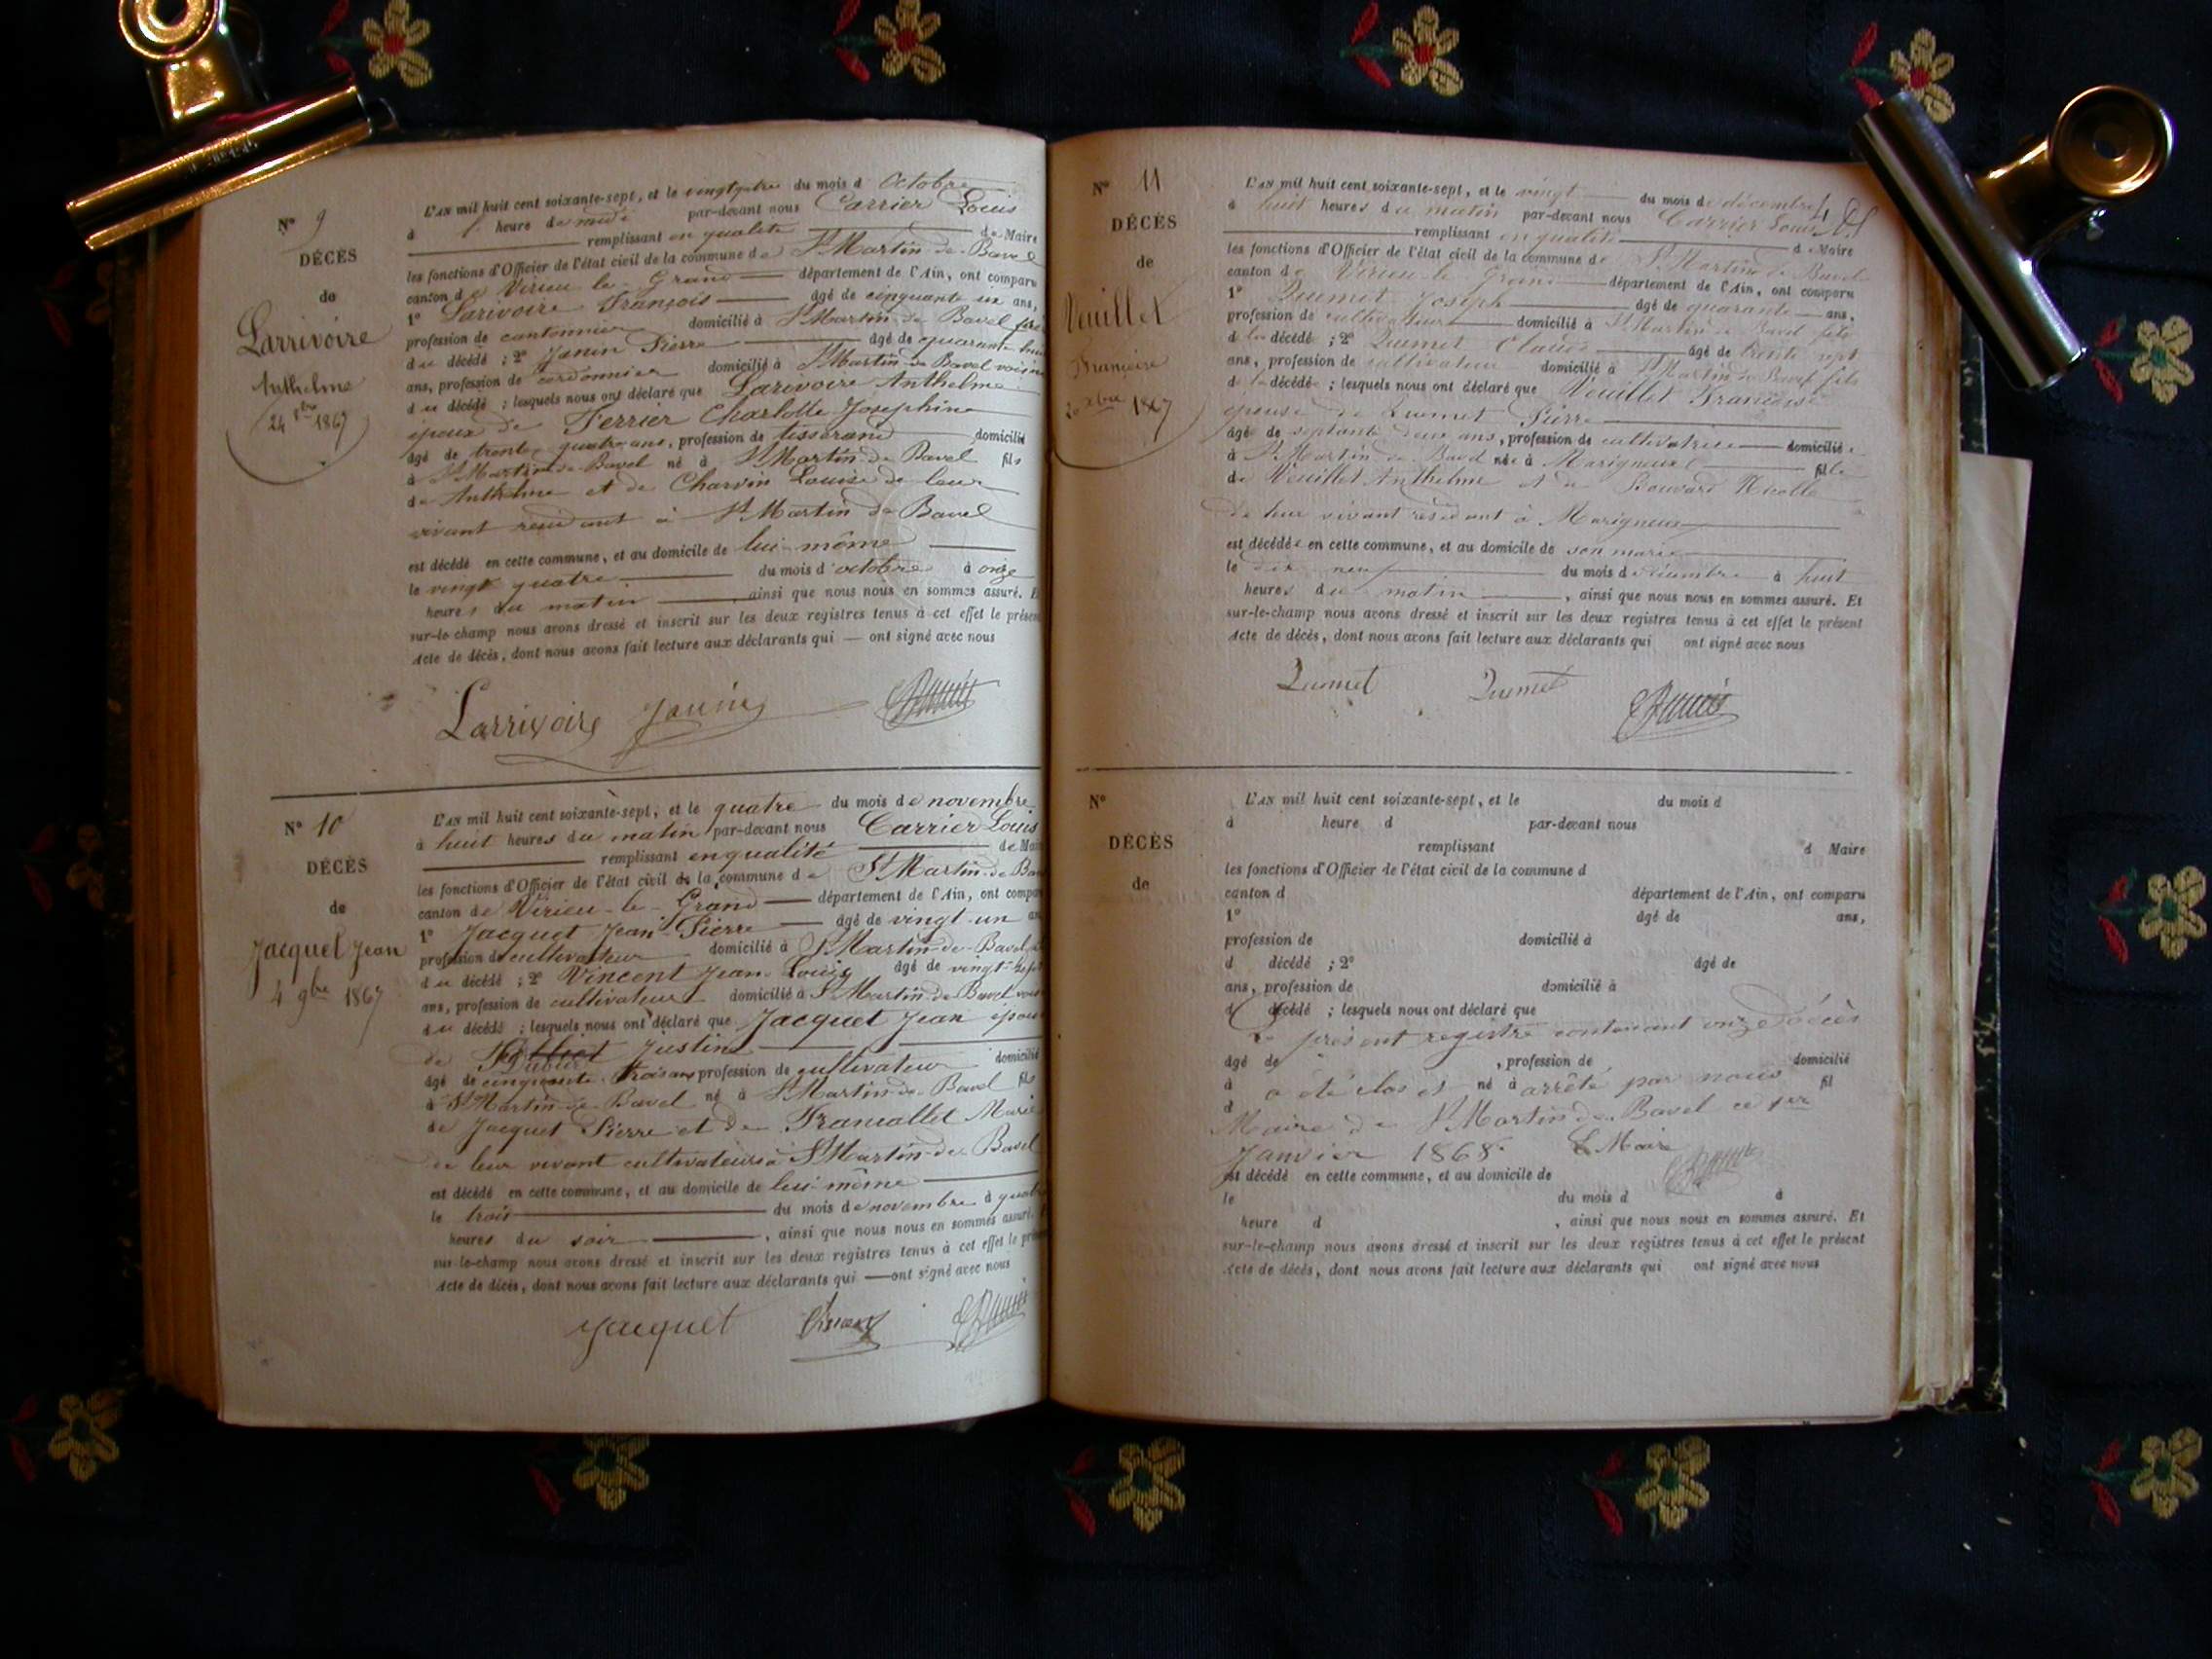 N° 9
DÉCÈS
de
Larrivoire
Anthelme
24 8bre 1867
L'AN mil huit cent soixante-sept, et le vingtquatre du mois d octobre
à 1 heure de midi par-devant nous Carrier Louis
remplissant en qualité de Maire
les fonctions d'Officier de l'état civil de la commune de St Martin de Bavel
canton de Virieu le Grand département de l'Ain, ont comparu
1° Larivoire François âgé de cinquante six ans,
profession de cantonnier domicilié à St Martin de Bavel
du décédé ; 2° Janin Pierre âgé de quarante huit
ans, profession de cordonnier domicilié à St Martin de Bavel voisin
du décédé ; lesquels nous ont déclaré que Larivoire Anthelme
époux de Perrier Charlotte Josephine
âgé de trente quatre ans, profession de tisserand domicilié
à St Martin de Bavel né à St Martin de Bavel fils
de Anthelme et de Charvin Louise de leur
vivant residant à St Martin de Bavel
est décédé en cette commune, et au domicile de lui-même
le vingt quatre du mois d'octobre à onze
heures du matin ainsi que nous nous en sommes assuré. E
sur-le champ nous avons dressé et inscrit sur les deux registres tenus à cet effet le présen
Acte de décès, dont nous avons fait lecture aux déclarants qui — ont signé avec nous
Larrivoire Janin
N° 10
DÉCÈS
de
Jacquet Jean
4 9bre 1867
L'AN mil huit cent soixante-sept, et le quatre du mois de novembre
à huit heures du matin par-devant nous Carrier Louis
remplissant en qualité de Mai
les fonctions d'Officier de l'état civil de la commune de St Martin de Bav
canton de Virieu-le-Grand département de l'Ain, ont compar
1° Jacquet Jean-Pierre âgé de vingt-un an
profession de cultivateur domicilié à St Martin-de-Bavel
du décédé ; 2° Vincent Jean-Louis âgé de vingt-sept
ans, profession de cultivateur domicilié à St Martin-de-Bavel vois
du décédé ; lesquels nous ont déclaré que Jacquet Jean épou
de Justine
âgé de cinquante trois ans profession de cultivateur domicilié
à St Martin-de-Bavel né à St Martin-de-Bavel fils
de Jacquet Pierre et de Francallet Marie
de leur vivant cultivateurs à St Martin-de-Bavel
est décédé en cette commune, et au domicile de lui-même
le trois du mois de novembre à quatr
heures du soir , ainsi que nous nous en sommes assuré.
sur-le-champ nous avons dressé et inscrit sur les deux registres tenus à cet effet le pré
Acte de décès, dont nous avons fait lecture aux déclarants qui —ont signé avec nous
Jacquet Vincent
N° 11
DÉCÈS
de
Veuillet
Françoise
20 xbre 1867
L'AN mil huit cent soixante-sept, et le vingt du mois de décembre
à huit heures du matin par-devant nous Carrier Louis
remplissant en qualité d Maire
les fonctions d'Officier de l'état civil de la commune de St Martin de Bavel
canton de Virieu le Grand département de l'Ain, ont comparu
1° Dumet Joseph âgé de quarante ans,
profession de cultivateur domicilié à St Martin de Bavel fils
d la décédé ; 2° Dumet Claude âgé de trente sept
ans, profession de cultivateur domicilié à St Martin de Bavel fils
de la décédée ; lesquels nous ont déclaré que Veuillet Françoise
épouse de Dumet Pierre
âgé de septante deux ans, profession de cultivatrice domiciliée
à St Martin de Bavel née à Marigneux fille
de Veuillet Anthelme et de Bouvard Nicolle
de leur vivant résidant à Marigneux
est décédée en cette commune, et au domicile de son marie
le dix neuf du mois de décembre à huit
heures du matin , ainsi que nous nous en sommes assuré. Et
sur-le-champ nous avons dressé et inscrit sur les deux registres tenus à cet effet le présent
Acte de décès, dont nous avons fait lecture aux déclarants qui ont signé avec nous
Dumet Dumet
N°
DÉCÈS
de
L'AN mil huit cent soixante-sept, et le du mois d
à heure d par-devant nous
remplissant d Maire
les fonctions d'Officier de l'état civil de la commune d
canton d département de l'Ain, ont comparu
1° âgé de ans,
profession de domicilié à
d décédé ; 2° âgé de
ans, profession de domicilié à
d décédé ; lesquels nous ont déclaré que
Le présent registre contenant onze Décès
âgé de , profession de domicilié
à a été clos et né à arrêté par nous fil
d
Maire de St Martin-de-Bavel ce 1er
Janvier 1868. Le Maire
est décédé en cette commune, et au domicile de
le du mois d à
heure d , ainsi que nous nous en sommes assuré. Et
sur-le-champ nous avons dressé et inscrit sur les deux registres tenus à cet effet le présent
Acte de décès, dont nous avons fait lecture aux déclarants qui ont signé avec nous